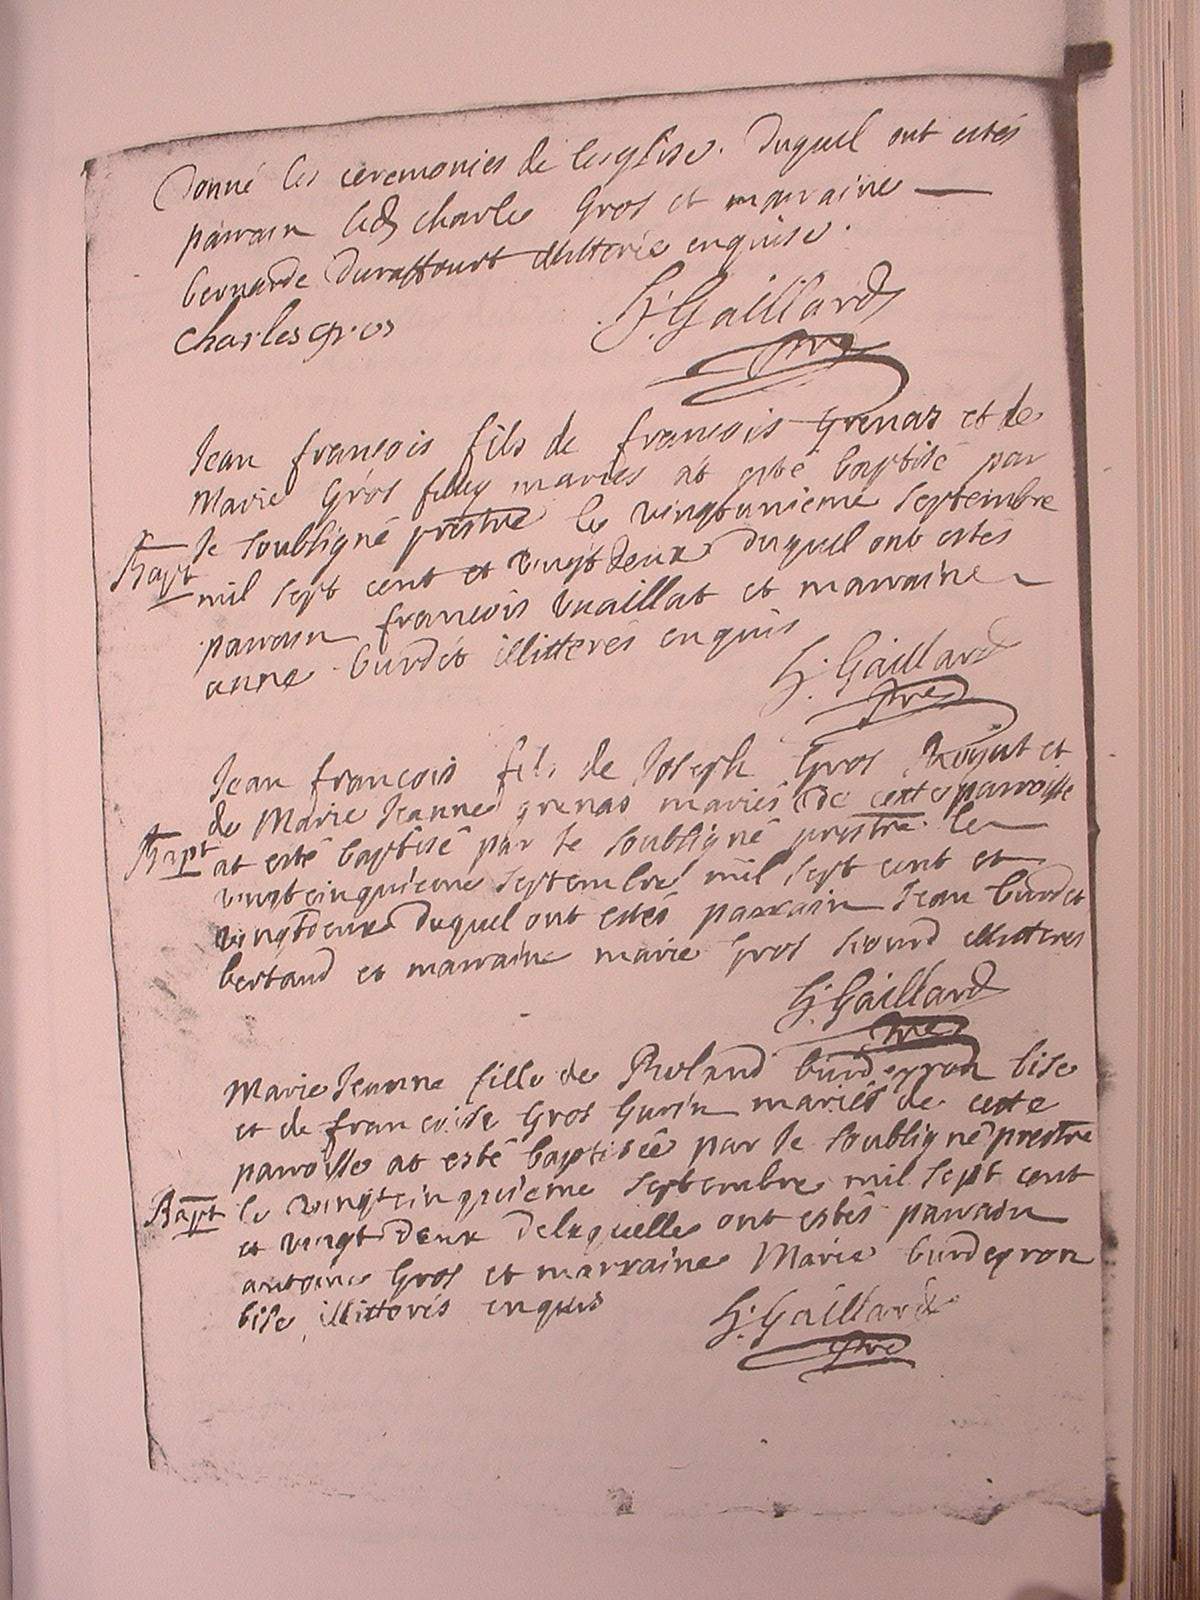 Donné les ceremonies de lesglise. Duquel ont estés
parrain led charle Gros et marraine
bernarde Duraffourt illitterée enquise.
charles gros
Gaillard
pre
Jean françois fils de françois grenas et de
Marie Gros mariés at esté baptisé par
Bapt
Je soubsigné prestre le vingtunieme septembre
mil sept cent et vingtdeux duquel ont estés
parrain françois vuaillat et marraine
anne burdet illitterés enquis
Gaillard
pre
Jean françois fils de Joseph Gros et
de Marie Jeanne grenas mariés de cette parroisse
Bapt
at esté baptisé par Je soubsigné prestre le
vingtcinquieme septembre mil sept cent et
vingtdeux duquel ont estés parrain Jean burdet
bertand et marraine marie Gros illitteres
Gaillard
pre
Marie Jeanne fille de Roland burdeyron bise
et de françoise Gros Gurin mariés de cette
parroisse at esté baptisée par Je soubsigné prestre
Bapt
le vingtcinquieme septembre mil sept cent
et vingt deux delaquelle ont estés parrain
antoine Gros et marraine Marie burdeyron
bise illitterés enquis
Gaillard
pre